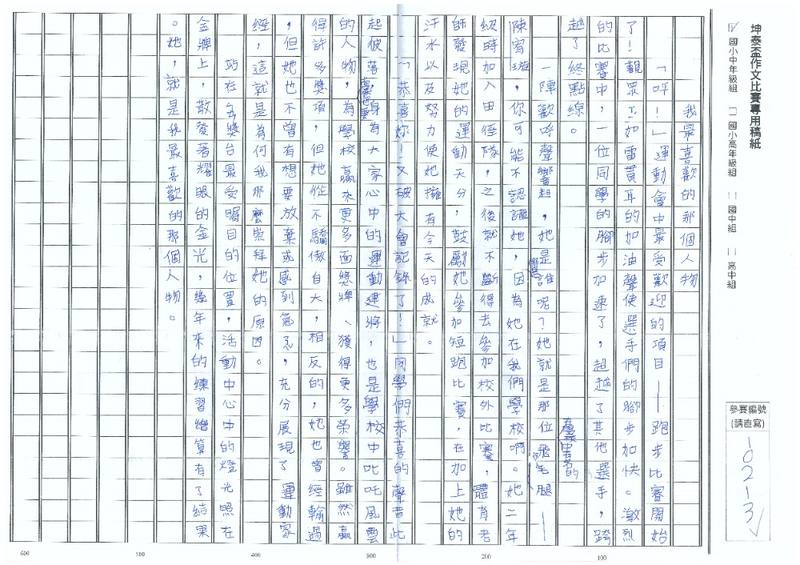 坤泰盃作文比賽專用稿紙
☑國小中年級組 □國小高年級組 □國中組 □高中組
參賽編號
(請直寫)
10213
我最喜歡的那個人物
「呯!」運動會中最受歡迎的項目——跑步比賽開始
了!觀眾如雷貫耳的加油聲使選手們的腳步加快。激烈
的比賽中,一位同學的腳步加速了,超越了其他選手,跨
越了終點線。
一陣歡呼聲響起,她是誰呢?她就是那位飛毛腿——
陳宥璇,你可能不認識她,因為她在我們學校啊。她二年
級時加入田徑隊,之後就不斷得去參加校外比賽,體育老
師發現她的運動天分,鼓勵她參加短跑比賽,在加上她的
汗水以及努力使她擁有今天的成就。
「恭喜妳!又破大會記錄了!」同學們恭喜的聲音此
起彼落,身為大家心中的運動建將,也是學校中叱吒風雲
的人物,為學校贏來更多面獎牌、獲得更多榮譽。雖然贏
得許多獎項,但她從不驕傲自大,相反的,她也曾經輸過
,但她也不曾有想要放棄或感到氣忿,充分展現了運動家
經,這就是為何我那麼崇拜她的原因。
站在台獎台最受矚目的位置,活動中心中的燈光照在
金牌上,散發著耀眼的金光,幾年來的練習總算有了結果
。她,就是我最喜歡的那個人物。
600 500 400 300 200 100